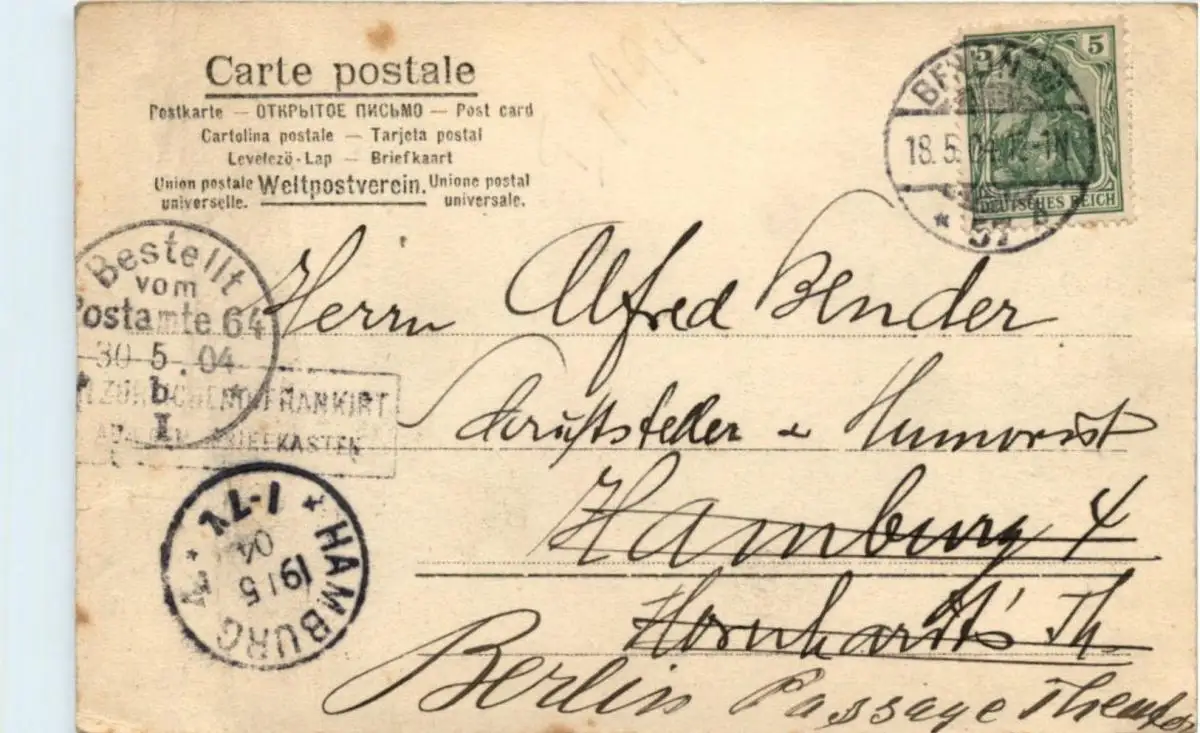 Carte postale
Postkarte — ОТКРЫТОЕ ПИСЬМО — Post card
Cartolina postale — Tarjeta postal
Levelező-Lap — Briefkaart
Union postale universelle. Weltpostverein. Unione postal universale.
5 5
DEUTSCHES REICH
18.5.04
* 57
Bestellt
vom
Postamte 64
30.5.04
* b *
I
FRANKIRT
BRIEFKASTEN
* HAMBURG *
19 5
04
Herrn Alfred Bender
Schriftsteller u Humorist
Hamburg 4
Hornhardt's Th.
Berlin Passage Theater